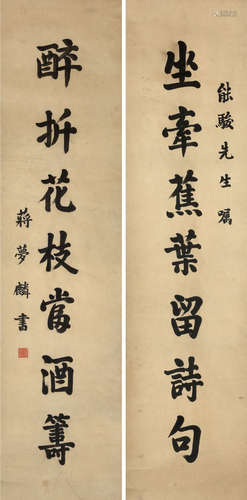 能駿先生屬
坐牽蕉葉留詩句
醉折花枝當酒籌
蔣夢麟書